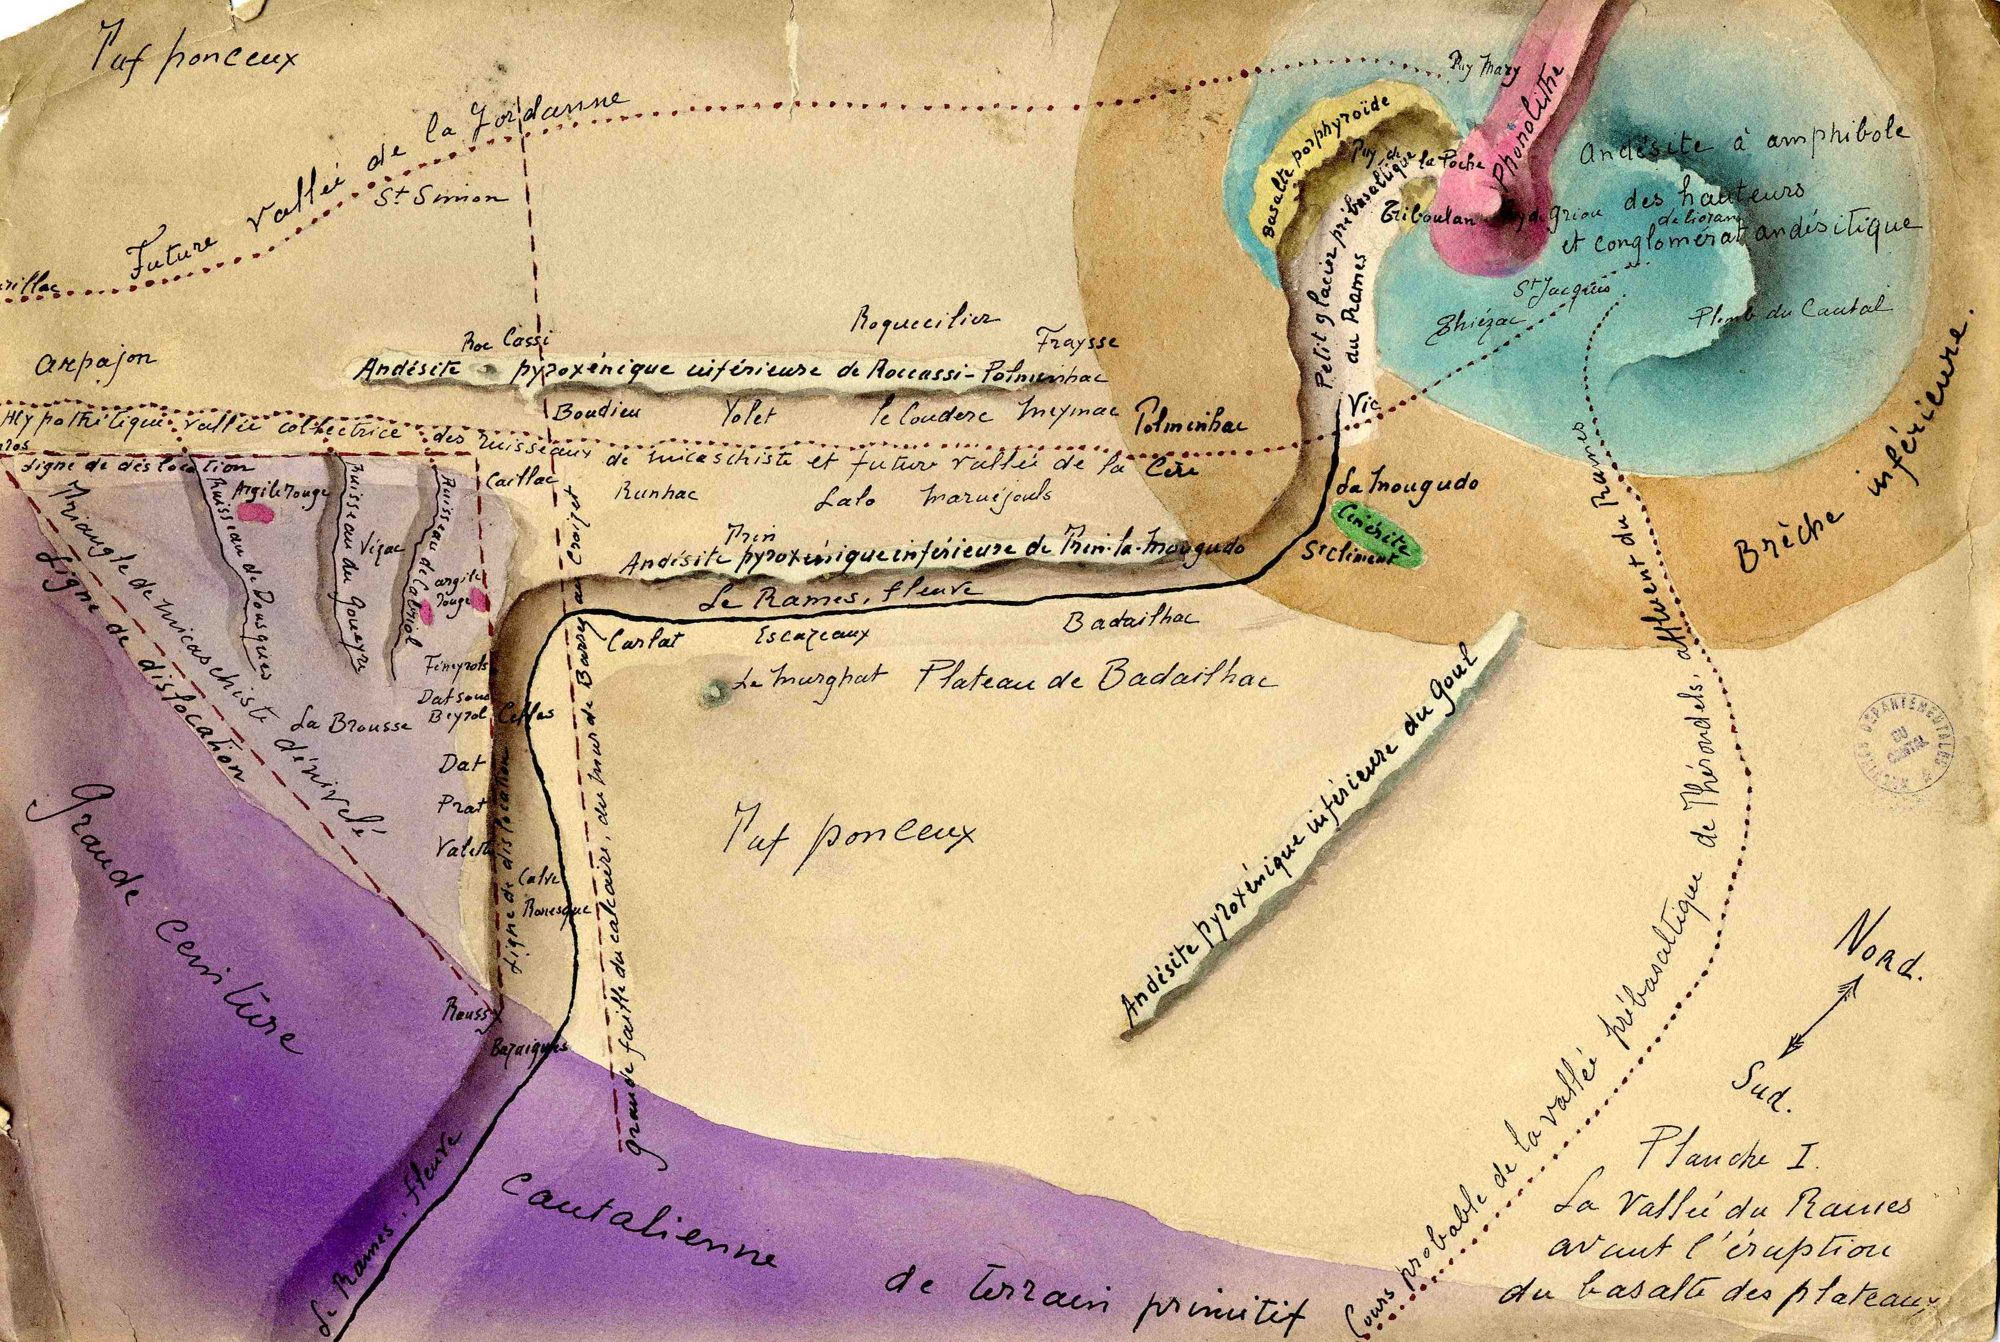 Tuf ponceux
Future vallée de la Jordanne
St Simon
Puy Mary
Phonolithe
Basalte porphyroïde
Puy de
la Poche
Griboulan
Puy de Griou
Andésite à amphibole
des hauteurs
de lioran
et conglomérat andésitique
St Jacques
Thiézac
Plomb du Cantal
Petit glacier prébasaltique
du Rames
Brèche inférieure.
Arpajon
Roc Cassi
Roquecilier
Fraysse
Andésite pyroxénique inférieure de Roccassi-Polminhac
Boudieu
Yolet
le Couderc
Meymac
Polminhac
Vic
Hypothétique vallée collectrice des ruisseaux de micaschiste et future vallée de la Cère
ligne de dislocation
Caillac
Runhac
Lalo
Maruéjouls
La Mougudo
Cinérite
St Clément
Argile rouge
Ruisseau de Dousques
Ruisseau du Goueyre
Vézac
Ruisseau de Cabriol
argile
rouge
Trin
Andésite pyroxénique inférieure de Trin-la-Mougudo
Le Rames, fleuve
Carlat
Escazeaux
Badailhac
Le Murghat
Plateau de Badailhac
Triangle de micaschiste dénivelé
Ligne de dislocation
Datsous
Beyrol
Celles
La Brousse
Dat
Prat
Valette
Calve
Ronesque
Ligne de dislocation
Grande faille du calcaire, du mur de Barrez au Croizet
Tuf ponceux
Andésite pyroxénique inférieure du Goul
Cours probable de la vallée prébasaltique de Thérondels, affluent du Rames
ARCHIVES DÉPARTEMENTALES
DU
CANTAL
Raussy
Bazaigues
Le Rames, fleuve
Grande ceinture
cantalienne
de terrain primitif
Nord.
Sud.
Planche I.
La Vallée du Rames
avant l'éruption
du basalte des plateaux